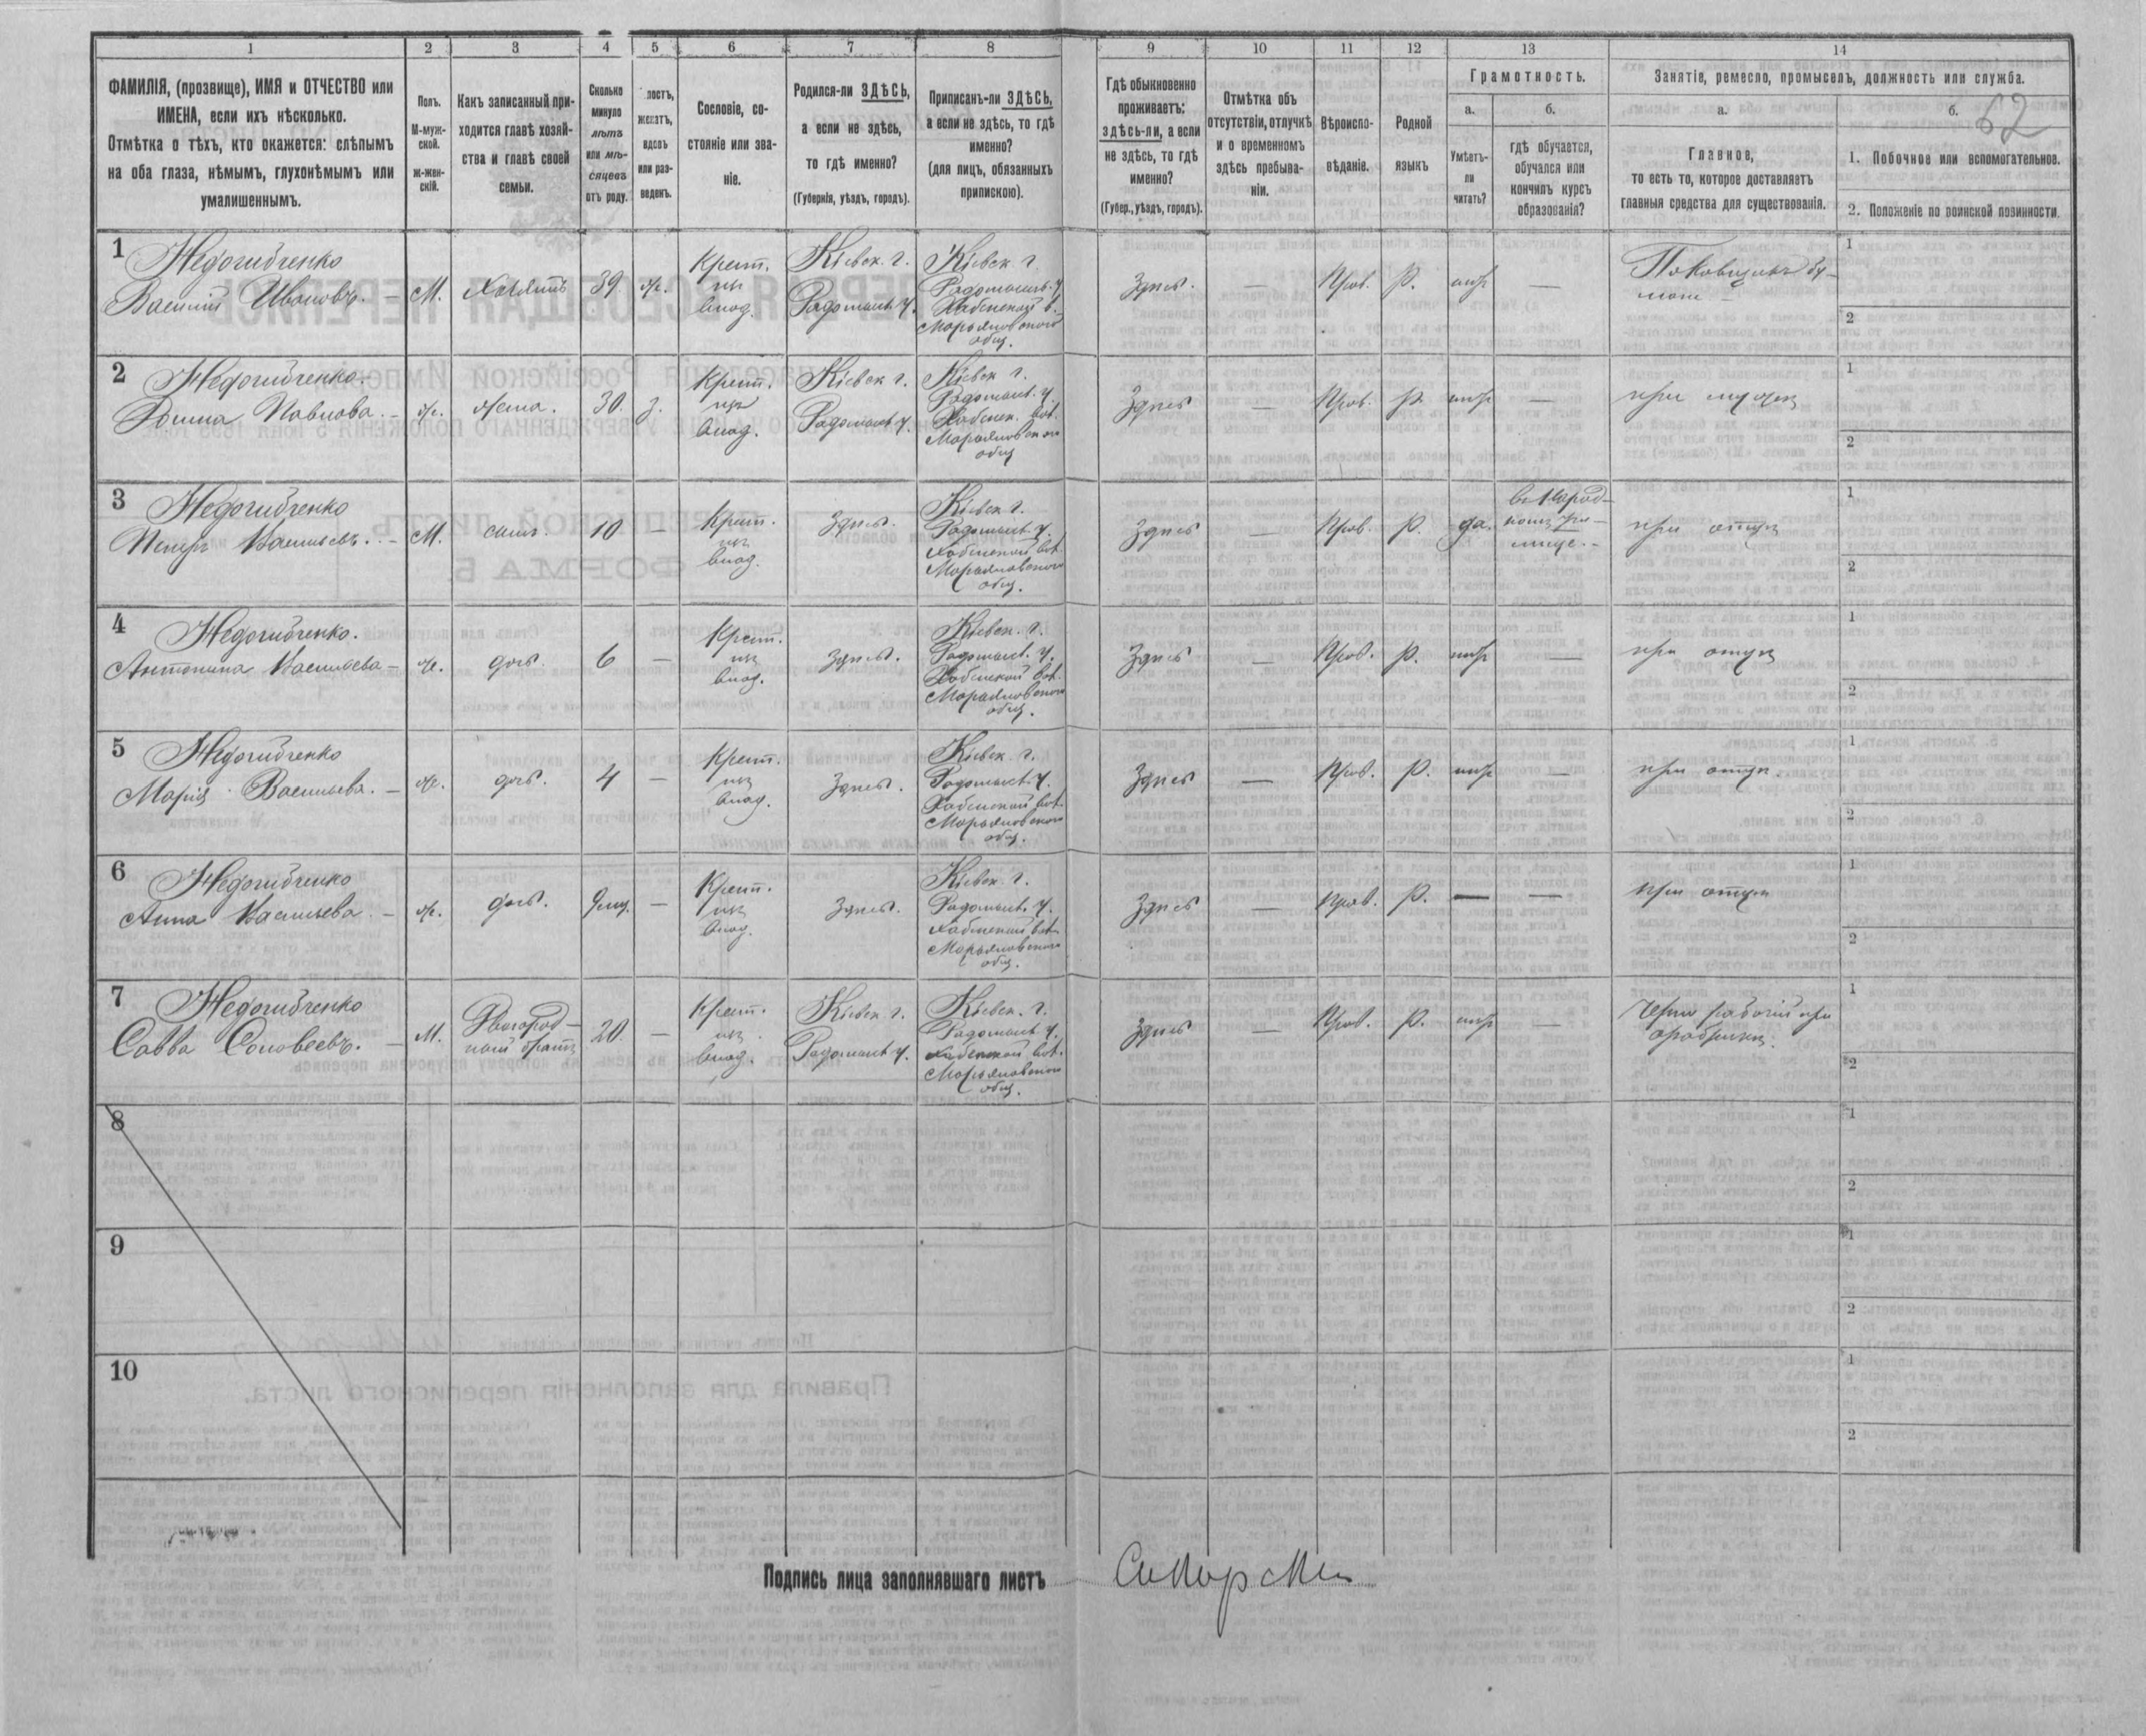 1 2 3 4 5 6 7 8 9 10 11 12 13 14
ФАМИЛІЯ, (прозвище), ИМЯ и ОТЧЕСТВО или
ИМЕНА, если ихъ нѣсколько.
Отмѣтка о тѣхъ, кто окажется: слѣпымъ
на оба глаза, нѣмымъ, глухонѣмымъ или
умалишеннымъ.
Полъ.
М-муж-
ской.
ж-жен-
скій.
Какъ записанный при-
ходится главѣ хозяй-
ства и главѣ своей
семьи.
Сколько
минуло
лѣтъ
или мѣ-
сяцевъ
отъ роду.
лостъ,
женатъ,
вдовъ
или раз-
веденъ.
Сословіе, со-
стояніе или зва-
ніе.
Родился-ли ЗДѢСЬ,
а если не здѣсь,
то гдѣ именно?
(Губернія, уѣздъ, городъ).
Приписанъ-ли ЗДѢСЬ,
а если не здѣсь, то гдѣ
именно?
(для лицъ, обязанныхъ
припискою).
Гдѣ обыкновенно
проживаетъ:
здѣсь-ли, а если
не здѣсь, то гдѣ
именно?
(Губер., уѣздъ, городъ).
Отмѣтка объ
отсутствіи, отлучкѣ
и о временномъ
здѣсь пребыва-
ніи.
Вѣроиспо-
вѣданіе.
Родной
языкъ
Грамотность.
а.
Умѣетъ-
ли
читать?
б.
гдѣ обучается,
обучался или
кончилъ курсъ
образованія?
Занятіе, ремесло, промыселъ, должность или служба.
а.
Главное,
то есть то, которое доставляетъ
главныя средства для существованія.
б.
62
1. Побочное или вспомогательное.
2. Положеніе по воинской повинности.
1
Недогибченко
Василій Ивановъ. – М. Хозяинъ 39. ж.
Крест.
изъ
влад.
Кіевск. г.
Радомысл. у.
Кіевск. г.
Радомысл. у.
Хабенской в.
Марьяновского
общ.
Здѣсь. — Прав. Р. нѣтъ —
1
2
2
Недогибченко.
Павлова. – ж. жена. 30. з.
Крест.
изъ
влад.
Кіевск. г.
Радомысл. у.
Кіевск. г.
Радомысл. у.
Хабенск. вол.
Марьяновского
общ
Здѣсь — Прав. Р. нѣтъ —
при мужѣ
1
2
3
Недогибченко
Петръ Васильевъ. – М. сынъ. 10 —
Крест.
изъ
влад.
Здѣсь.
Кіевск. г.
Радомысл. у.
Хабенской вол.
Марьяновского
общ.
Здѣсь — Прав. Р. да.
въ Народ-
номъ Учи-
лище. –
при отцѣ
1
2
4
Недогибченко.
Антонина Васильева – ж. дочь. 6 —
Крест.
изъ
влад.
Здѣсь.
Кіевск. г.
Радомысл. у.
Хабенской вол.
Марьяновского
общ.
Здѣсь — Прав. Р. нѣтъ —
при отцѣ
1
2
5
Недогибченко
Марія Васильева. – ж. дочь. 4 —
Крест.
изъ
влад.
Здѣсь.
Кіевск. г.
Радомысл. у.
Хабенской вол.
Марьяновского
общ.
Здѣсь — Прав. Р. нѣтъ —
при отцѣ.
1
2
6
Недогибченко
Анна Васильева. – ж. дочь. 9 мц. —
Крест.
изъ
влад.
Здѣсь.
Кіевск. г.
Радомысл. у.
Хабенской вол.
Марьяновского
общ.
Здѣсь — Прав. Р. — —
при отцѣ
1
2
7
Недогибченко
Савва Соловеевъ. – М.
Двоюрод-
ный братъ
20. —
Крест.
изъ
влад.
Кіевск. г.
Радомысл. у.
Кіевск. г.
Радомысл. у.
Хабенской вол.
Марьяновского
общ.
Здѣсь — Прав. Р. нѣтъ —
Черно рабочій при
фабрикѣ.
1
2
8
1
2
9
1
2
10
1
2
Подпись лица заполнявшаго листъ